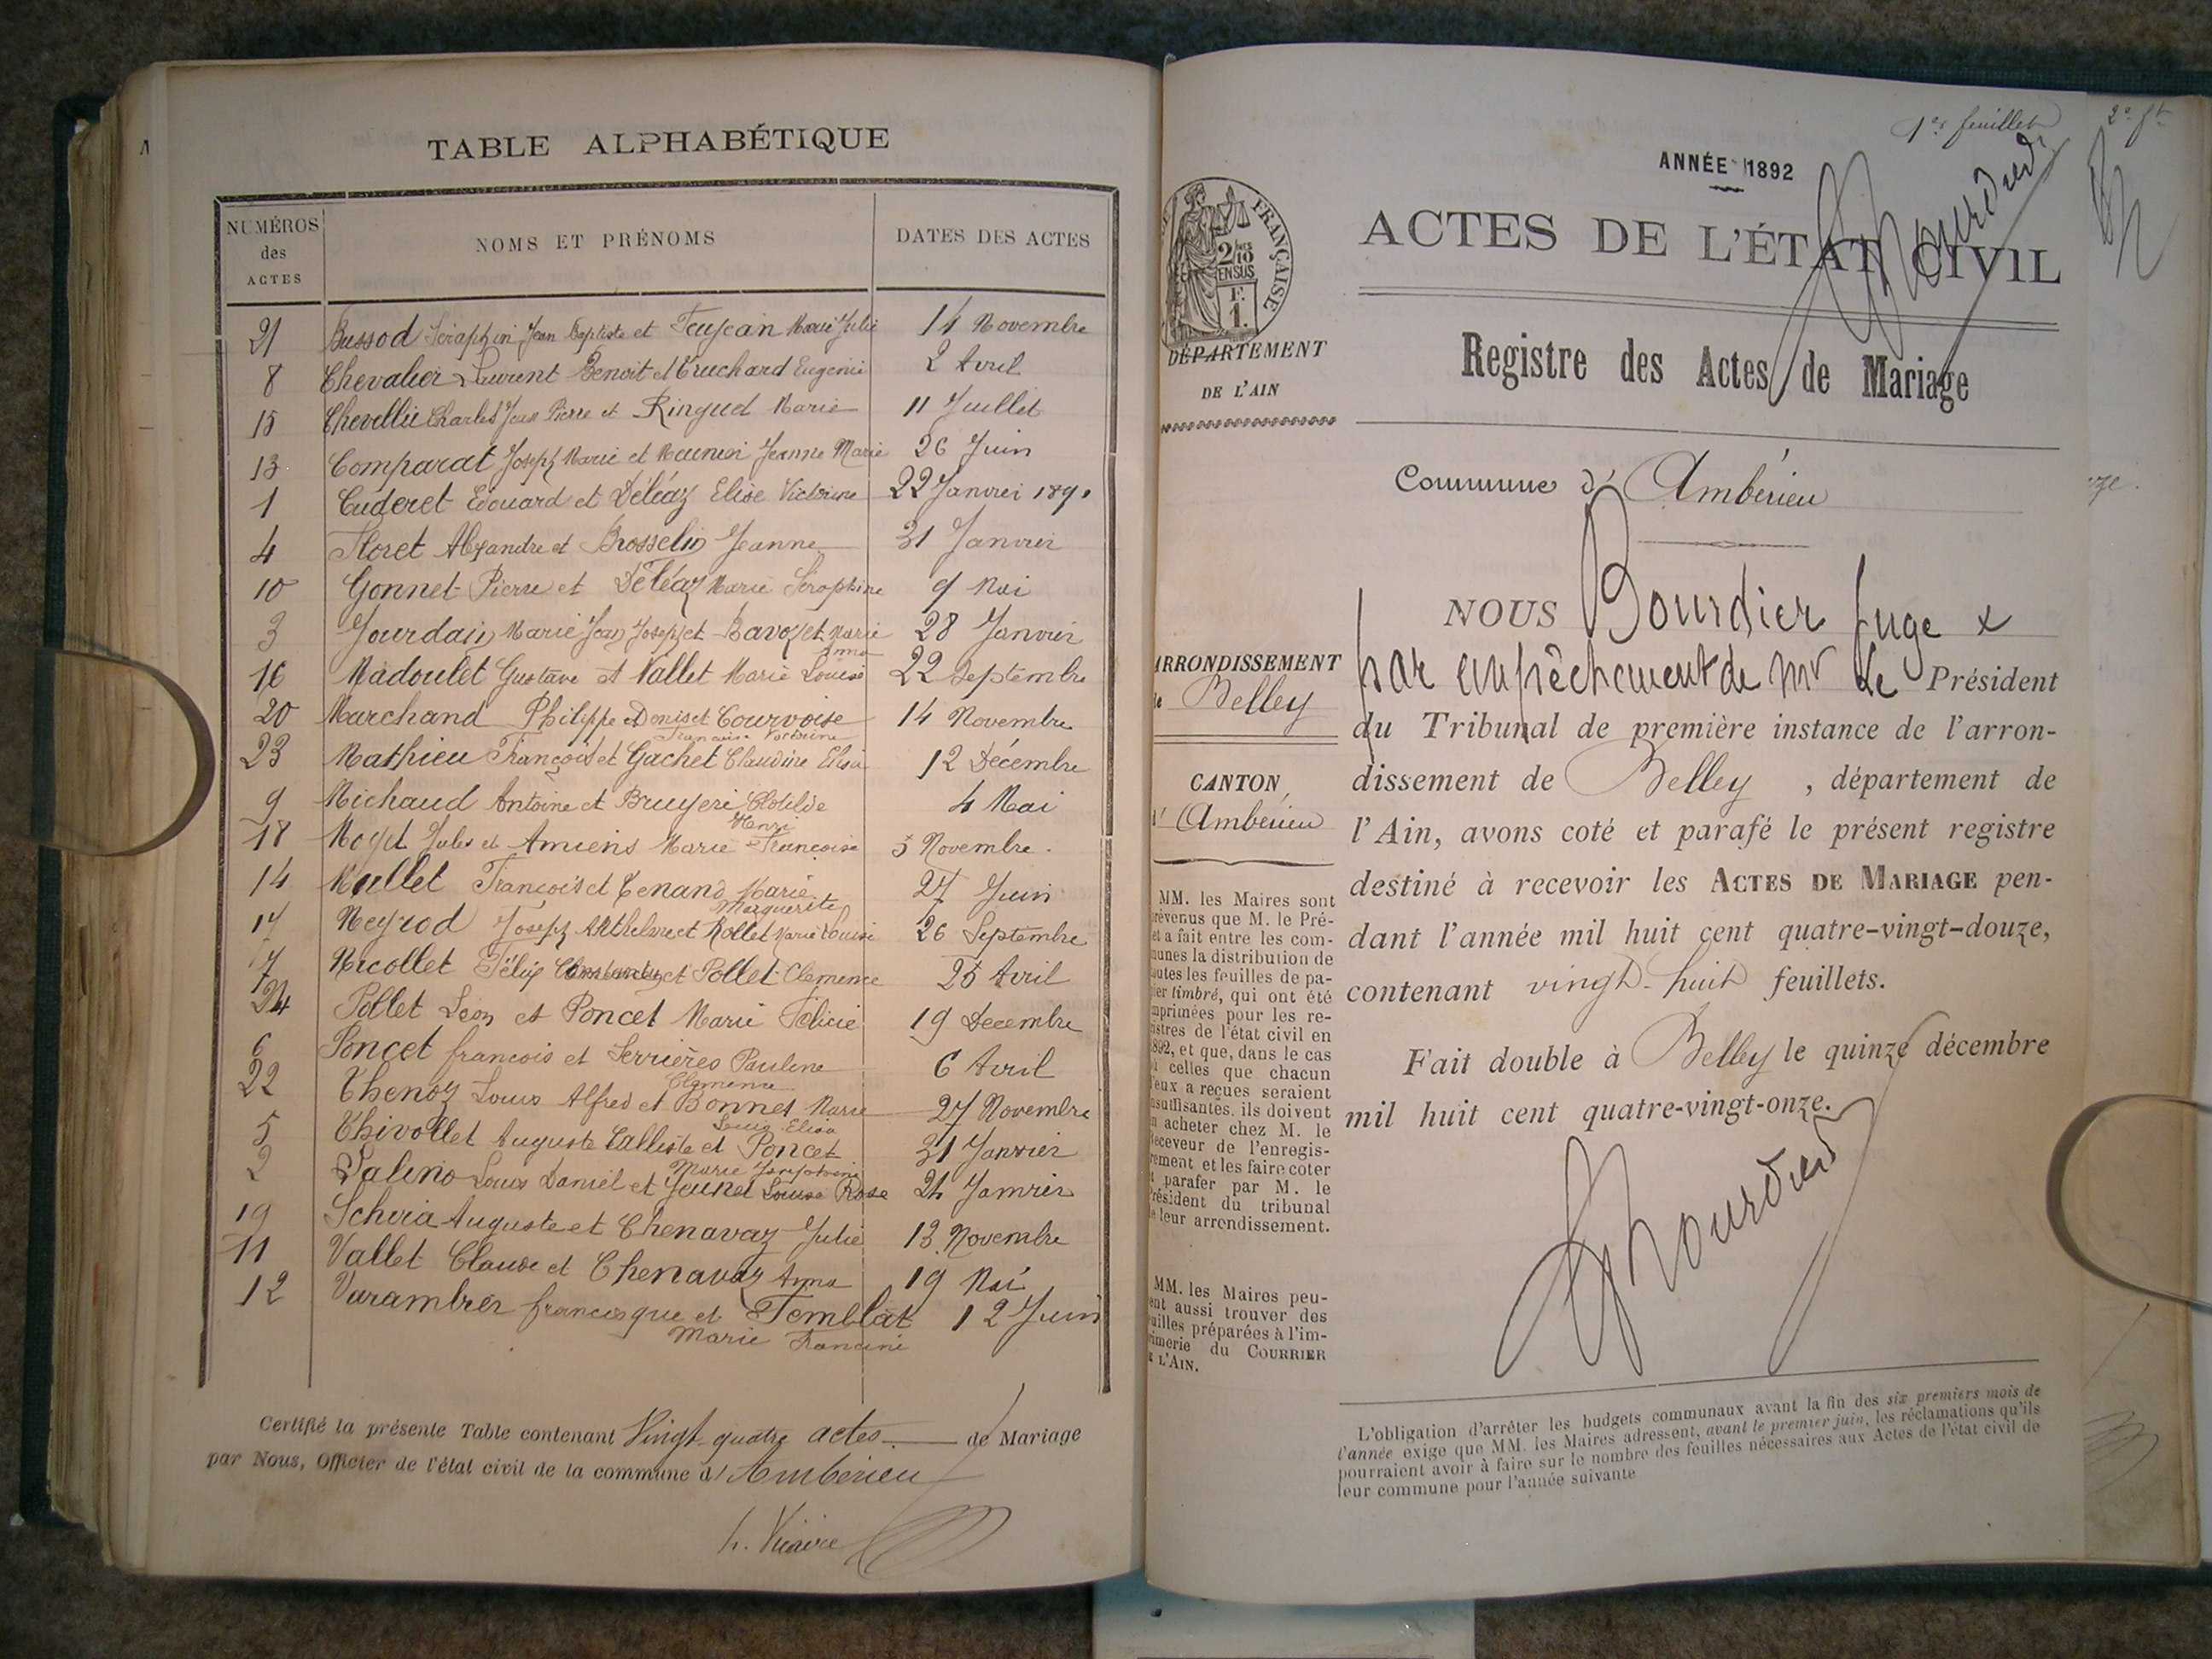 TABLE ALPHABÉTIQUE
NUMÉROS des ACTES NOMS ET PRÉNOMS DATES DES ACTES
21 Bussod Séraphin Jean Baptiste et Feujean Marie Julie 14 Novembre
8 Chevalier Laurent Benoit et Truchard Eugénie 2 Avril
15 Chevellie Charles Jean Pierre et Ringuet Marie 11 Juillet
13 Comparat Joseph Marie et Meunier Jeanne Marie 26 Juin
1 Cuderet Edouard et Déléaz Elise Victorine 22 Janvier 1891
4 Floret Alexandre et Brosselin Jeanne 31 Janvier
10 Gonnet Pierre et Déléaz Marie Séraphine 9 Mai
3 Jourdain Marie Jean Joseph et Bavozet Marie Anna 28 Janvier
16 Madoulet Gustave et Vallet Marie Louise 22 Septembre
20 Marchand Philippe Denis et Courvoise Françoise Victorine 14 Novembre
23 Mathieu François et Gachet Claudine Elisa 12 Décembre
9 Michaud Antoine et Bruyere Clotilde 4 Mai
18 Moyet Jules Henri et Amiens Marie Françoise 5 Novembre
14 Mullet François et Tenand Marie Marguerite 27 Juin
17 Neyrod Joseph Anthelme et Rollet Marie Louise 26 Septembre
7 Nicollet Félix et Pollet Clemence 25 Avril
24 Pollet Léon et Poncet Marie Félicie 19 Decembre
6 Poncet francois et Serrières Pauline 6 Avril
22 Thenoz Louis Alfred et Bonnet Marie Clemence 27 Novembre
5 Thivollet Auguste Calliste et Poncet Louise Elisa 31 Janvier
2 Salino Louis Daniel et Jeunet Louise Rose Marie 24 Janvier
19 Schiria Auguste et Chenavaz Julie 13 Novembre
11 Vallet Claude et Chenavaz Anna 19 Mai
12 Varambrer francisque et Temblat 12 Juin
Marie Francine
Certifié la présente Table contenant Vingt quatre actes de Mariage
par Nous, Officier de l'état civil de la commune d' Amberieu
h. Vicaire
1er feuillet
2e ft
ANNÉE 1892
Bourdier
ACTES DE L'ÉTAT CIVIL
FRANÇAISE
2/10 EN SUS
F. 1.
DÉPARTEMENT
DE L'AIN
Registre des Actes de Mariage
Commune d' Ambérieu
NOUS Bourdier Juge x
ARRONDISSEMENT
de Belley
par empêchement de Mr le Président
du Tribunal de première instance de l'arron-
dissement de Belley, département de
l'Ain, avons coté et parafé le présent registre
destiné à recevoir les ACTES DE MARIAGE pen-
dant l'année mil huit cent quatre-vingt-douze,
contenant vingt-huit feuillets.
Fait double à Belley le quinze décembre
mil huit cent quatre-vingt-onze.
Bourdier
CANTON
d' Ambérieu
MM. les Maires sont
prévenus que M. le Pré-
et a fait entre les com-
munes la distribution de
toutes les feuilles de pa-
pier timbré, qui ont été
imprimées pour les re-
gistres de l'état civil en
1892, et que, dans le cas
celles que chacun
d'eux a reçues seraient
insuffisantes, ils doivent
en acheter chez M. le
Receveur de l'enregis-
trement et les faire coter
et parafer par M. le
Président du tribunal
de leur arrondissement.
MM. les Maires peu-
vent aussi trouver des
feuilles préparées à l'im-
primerie du COURRIER
DE L'AIN.
L'obligation d'arrêter les budgets communaux avant la fin des six premiers mois de
l'année exige que MM. les Maires adressent, avant le premier juin, les réclamations qu'ils
pourraient avoir à faire sur le nombre des feuilles nécessaires aux Actes de l'état civil de
leur commune pour l'année suivante